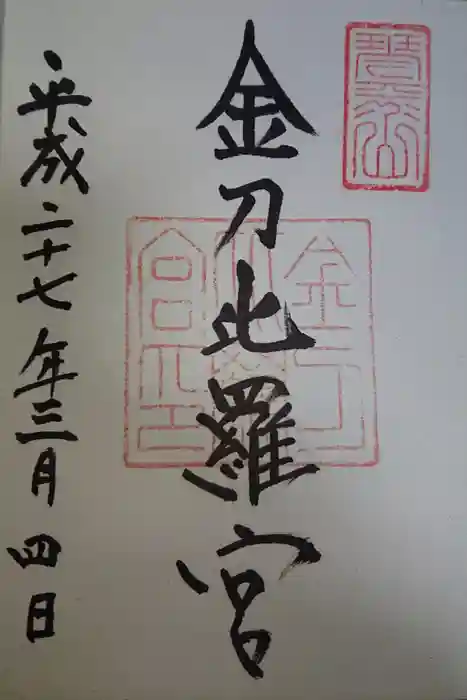 琴平山
金刀比羅宮
金刀
比羅
宮印
平成二十七年三月四日